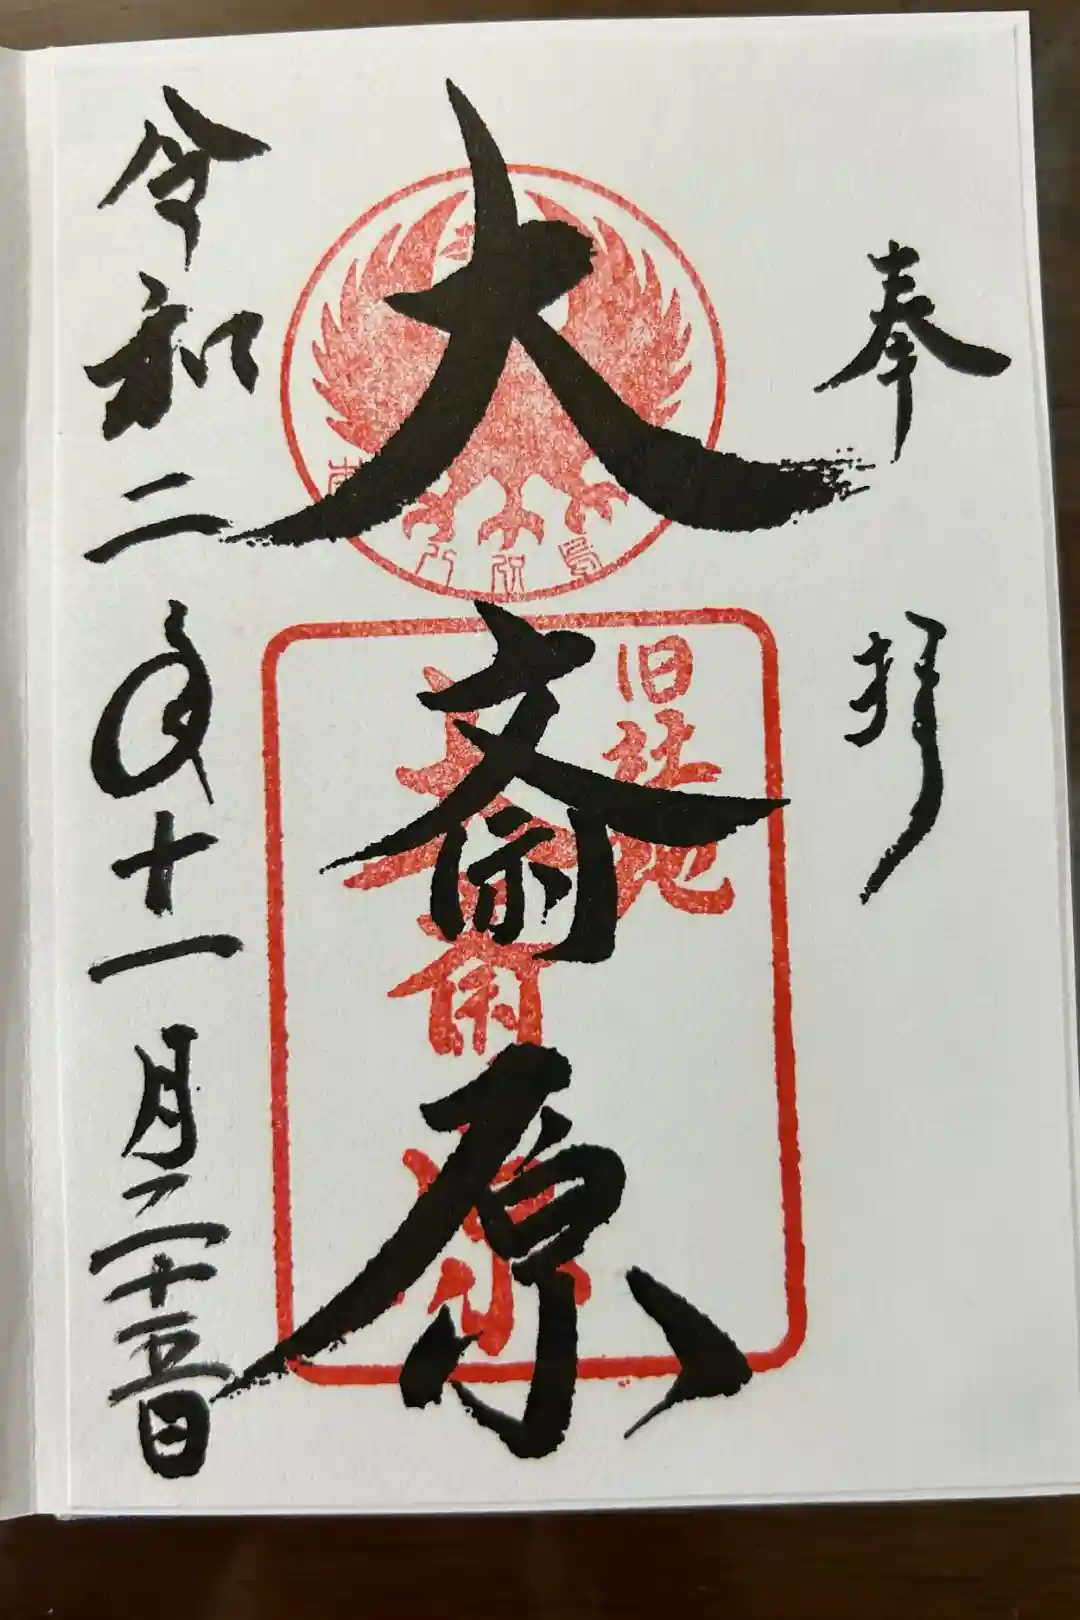 奉拝
旧社地
大斎原
大斎原
令和二年十一月二十五日